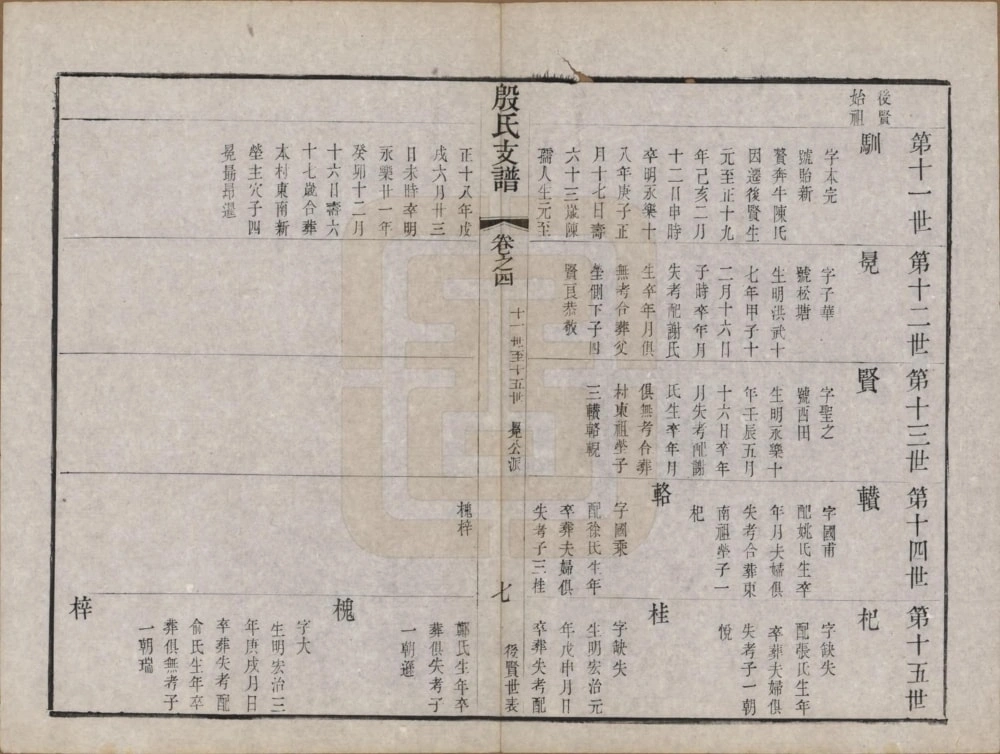 第十一世
後賢
始祖
馴
字本完
號貽新
贅奔牛陳氏
因遷後賢生
元至正十九
年己亥二月
十二日申時
卒明永樂十
八年庚子正
月十七日壽
六十三歲陳
孺人生元至
正十八年戊
戌六月廿三
日未時卒明
永樂廿一年
癸卯十二月
十六日壽六
十七歲合葬
本村東南新
塋主穴子四
晃勗昂暹
第十二世
晃
字子華
號松塘
生明洪武十
七年甲子十
二月十六日
子時卒年月
失考配謝氏
生卒年月俱
無考合葬父
塋側下子四
賢良恭敬
第十三世
賢
字聖之
號酉田
生明永樂十
年壬辰五月
十六日卒年
月失考配謝
氏生卒年月
俱無考合葬
村東祖塋子
三轒輅輗
第十四世
轒
字國甫
配姚氏生卒
年月夫婦俱
失考合葬東
南祖塋子一
杞
輅
字國乘
配徐氏生年
卒葬夫婦俱
失考子三桂
槐梓
第十五世
杞
字缺失
配張氏生年
卒葬夫婦俱
失考子一朝
悅
桂
字缺失
生明宏治元
年戊申月日
卒葬失考配
鄭氏生年卒
葬俱失考子
一朝遷
槐
字大
生明宏治三
年庚戌月日
卒葬失考配
俞氏生年卒
葬俱無考子
一朝瑞
梓
殷氏支譜
卷之四
十一世至十五世
晃公派
七
後賢世表